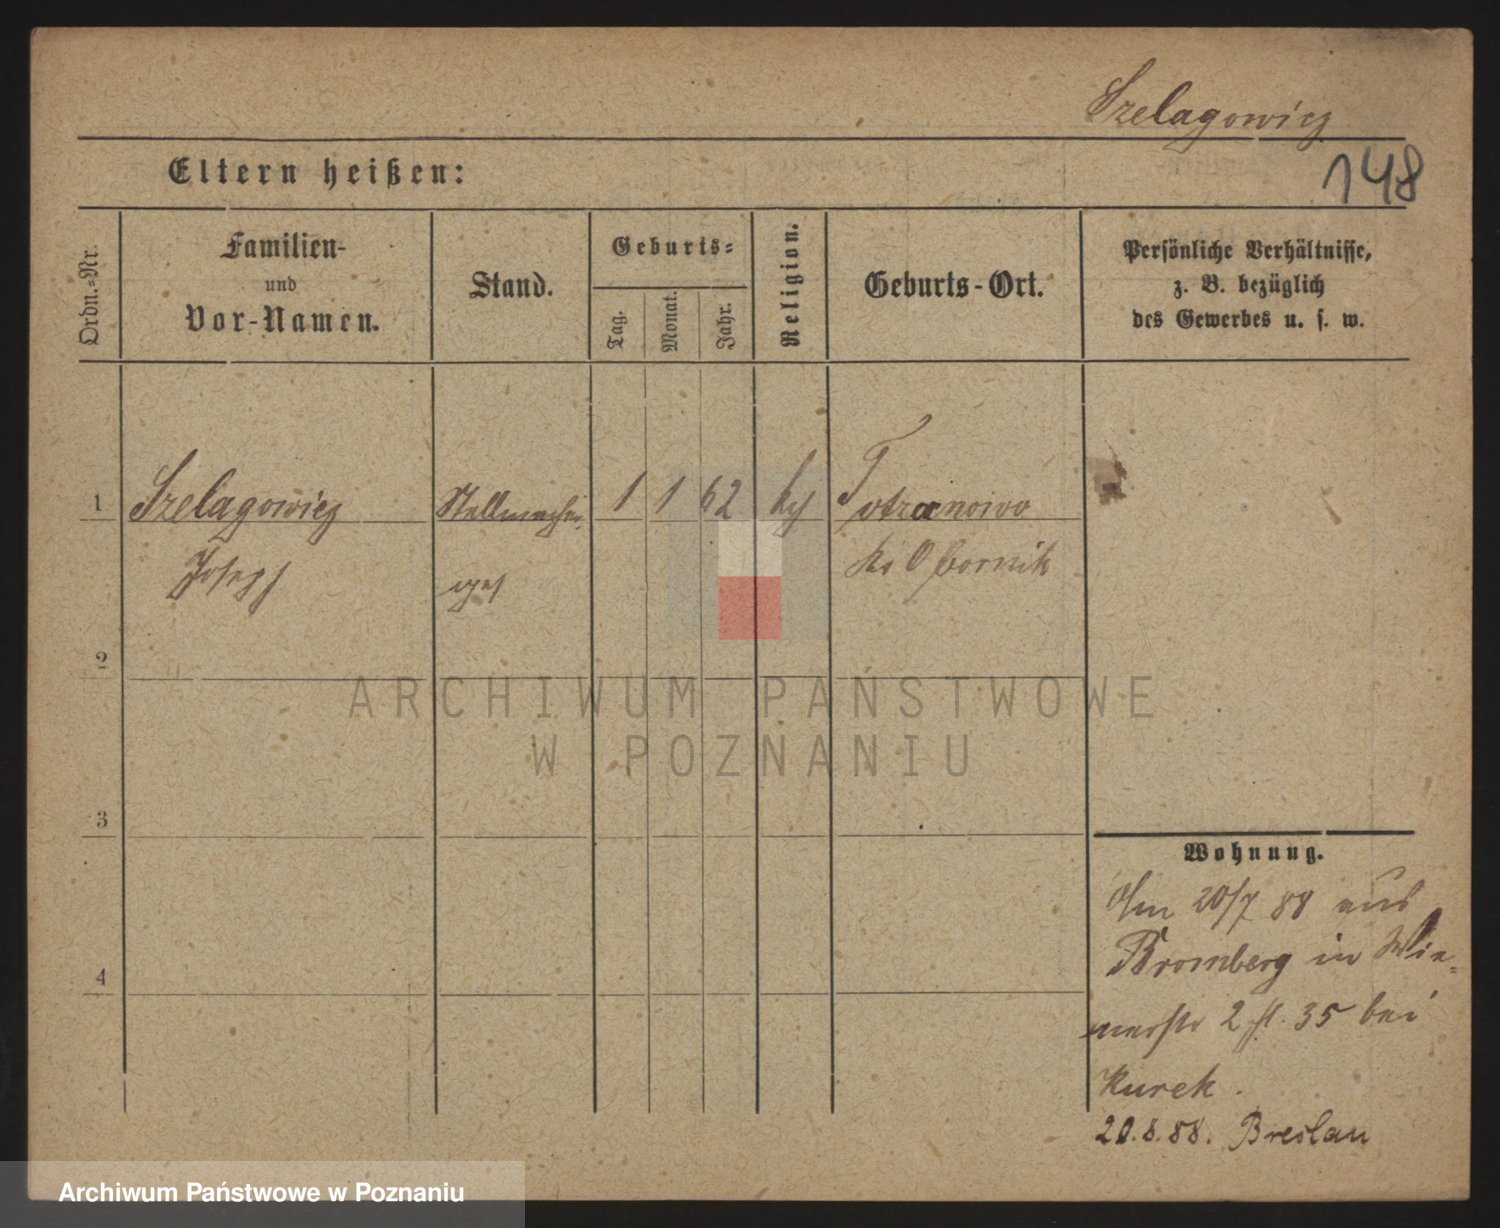 Szelagowicz
148
Eltern heißen:
Ordn.-Nr.
Familien-
und
Vor-Namen.
Stand.
Geburts-
Tag.
Monat.
Jahr.
Religion.
Geburts-Ort.
Persönliche Verhältnisse,
z. B. bezüglich
des Gewerbes u. s. w.
1 Szelagowicz Stellmacher 1 1 62 kth
Joseph
Kr Obornik
2
3
4
Wohnung.
Am 20/7 88 aus
Bromberg in Wie-
nerstr 2 St. 35 bei
Kurek.
20.8.88. Breslau
ARCHIWUM PAŃSTWOWE
W POZNANIU
Archiwum Państwowe w Poznaniu